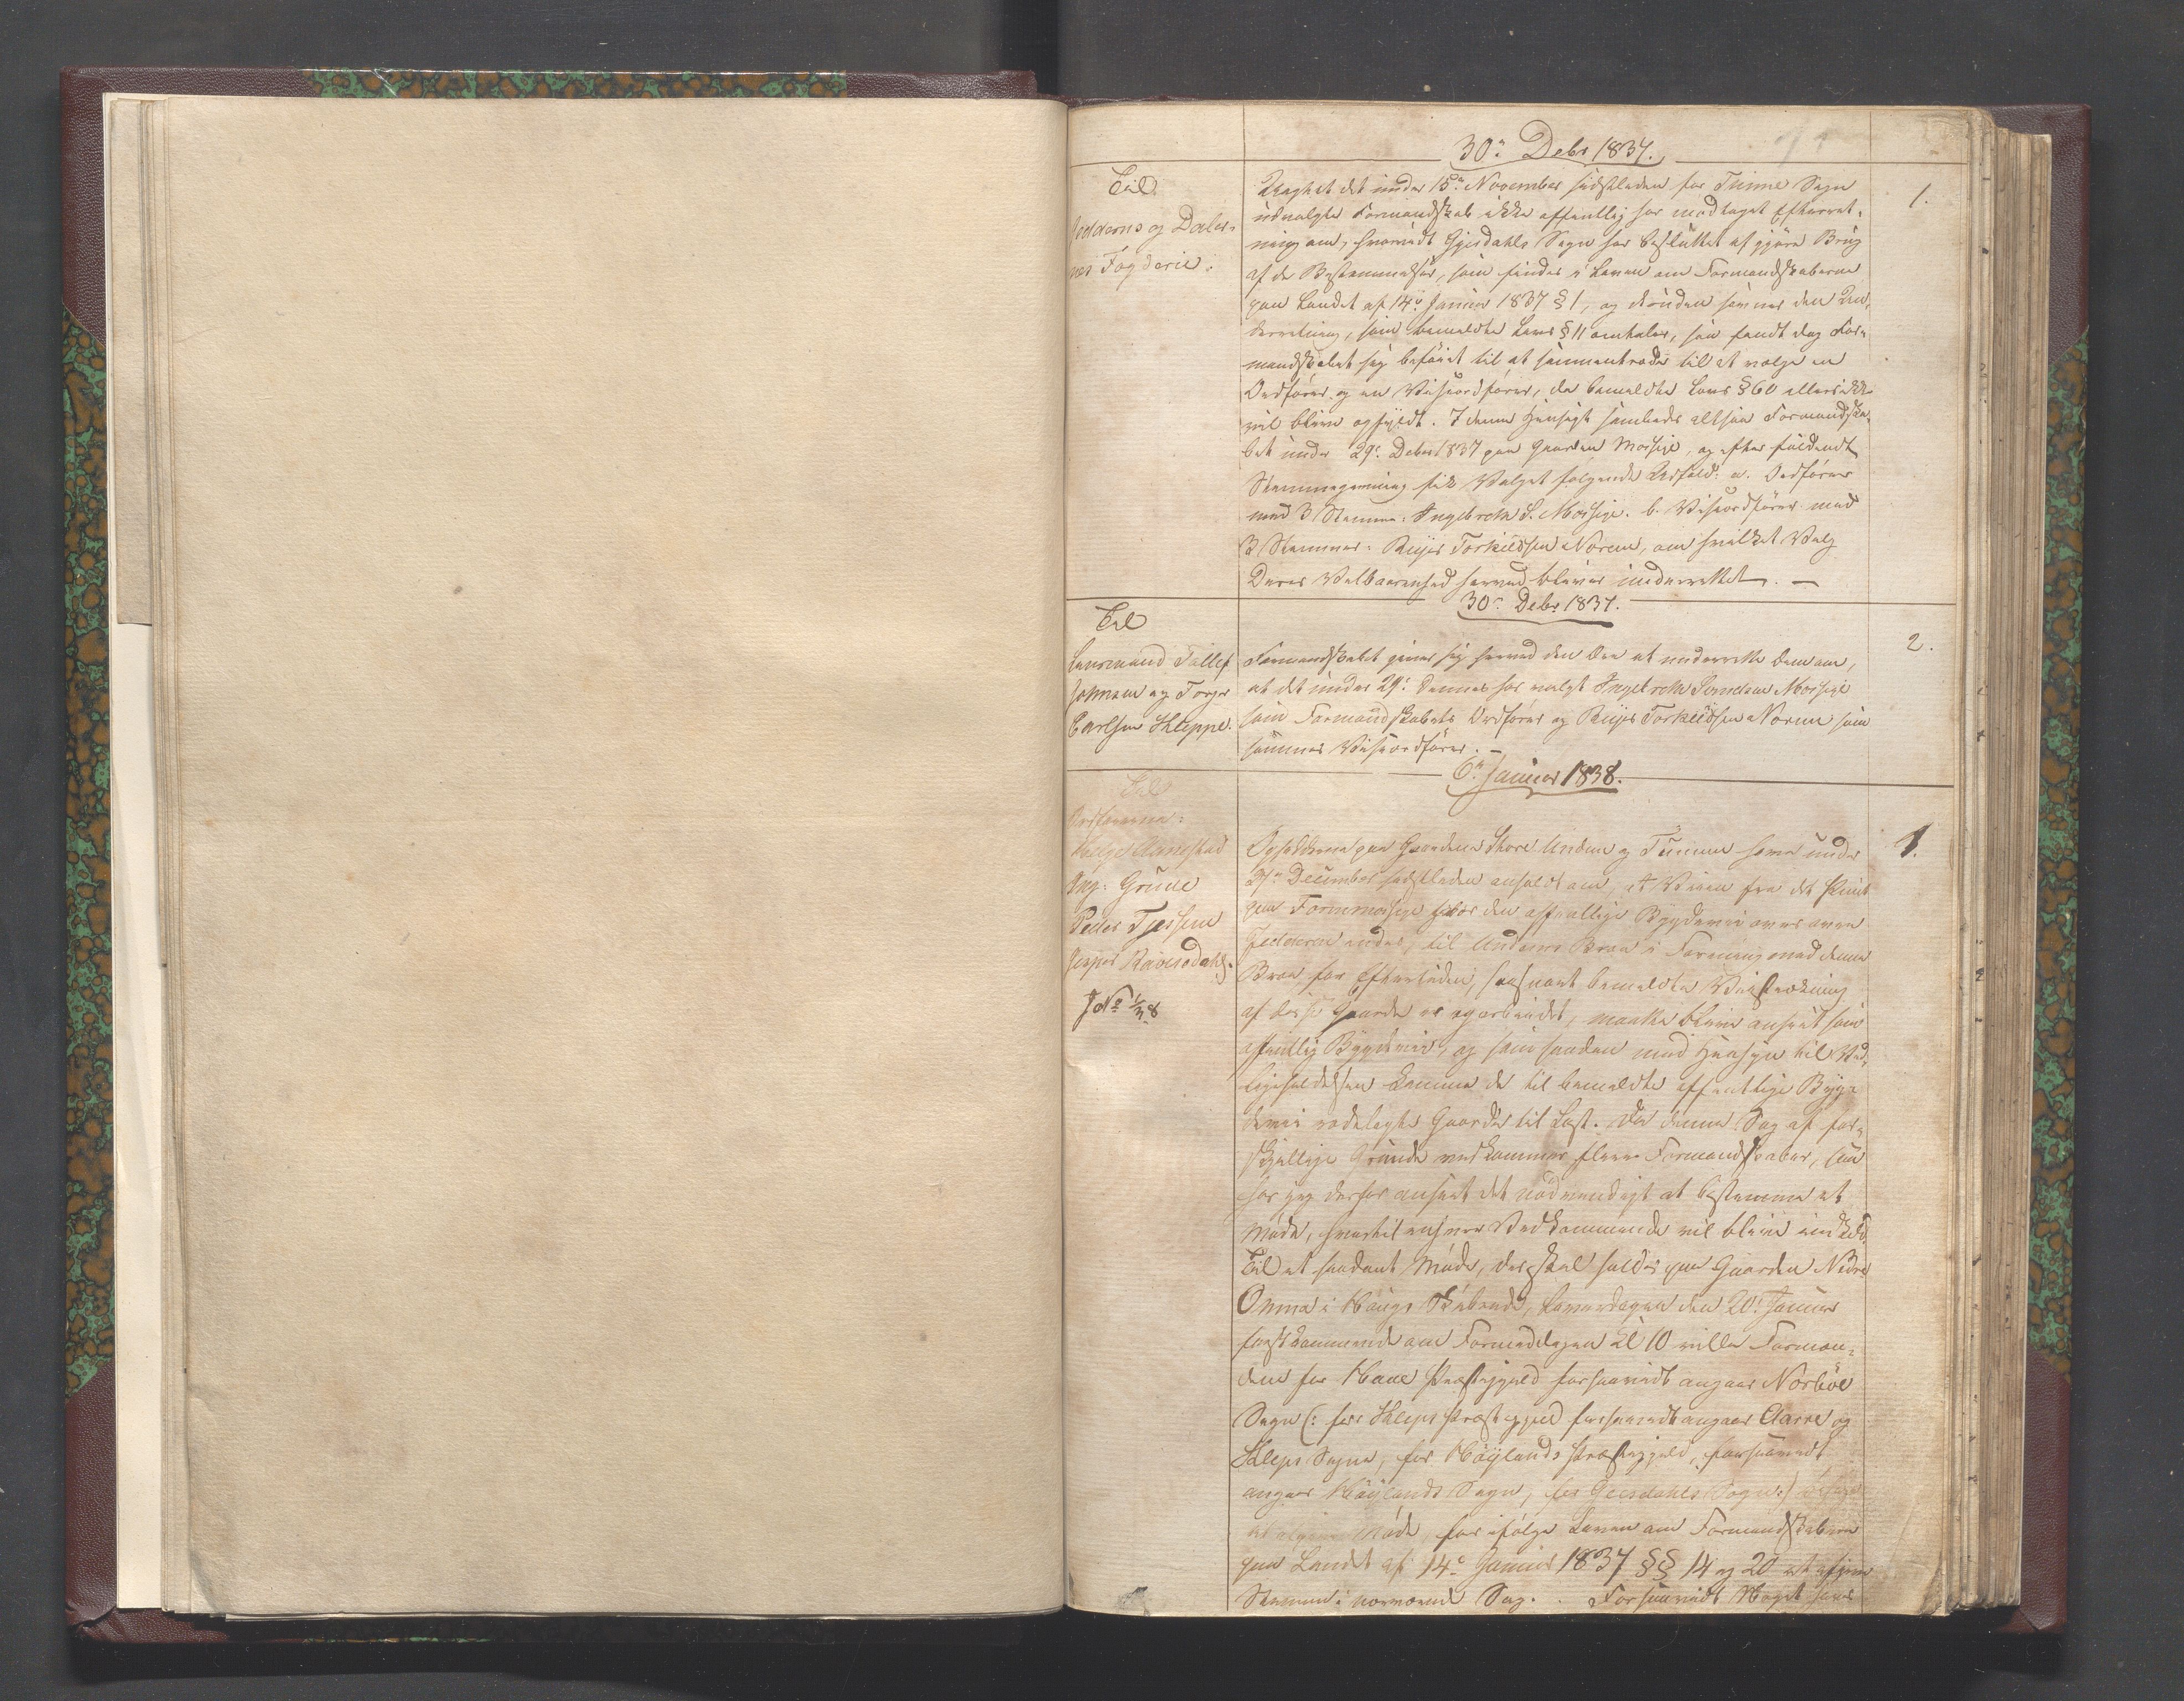 30te Debr 1837.
Til
Jedderens og Daler-
nes Fogderie.
1.
Uagtet det under 15de November sidstleden for Time Sogn
udvalgte Formandskab ikke offentlig har modtaget Efterret-
ning om, hvorvidt Gjesdahls Sogn har besluttet at gjøre Brug
af de Bestemmelser, som findes i Loven om Formandskaberne
paa Landet af 14de Januar 1837 § 1, og desuden savner den Un-
derretning, som bemeldte Lovs § 11 omtaler, saa fandt dog For-
mandskabet sig beføiet til at sammentræde til at vælge en
Ordfører og en Viseordfører, da bemeldte Lovs § 60 ellers ikke
vil blive opfyldt. I denne Hensigt samledes altsaa Formandska-
bet under 29de Debr 1837 paa Gaarden Mossige, og efter foldendt
Stemmegivning fik Valget følgende Udfald: a. Ordfører
med 3 Stemmer: Ingebreth S. Mossige. b. Viseordfører med
3 Stemmer: Reijer Torkildsen Norem, om hvilket Valg
Deres Velbaarenhed herved bliver underrettet. —
30te Debr 1837.
Til
Lensmand Tollef
Johnsen og Torger
Carlsen Kleppe.
2.
Formandskabet giver sig herved den Ære at underrette Dem om,
at det under 29de dennes har valgt Ingebreth Mossige
som Formandskabets Ordfører og Reijer Torkildsen Norem som
sammes Viseordfører. —
6te Januar 1838.
Til
Ordførerne:
Helge Aanestad
Ing: Grude
Peder Tjessem
Jesper Ravnsdahl.
J No 1/38
1.
Opsidderne paa Gaardene Store Undem og Tunem have under
27de December sidstleden anholdt om, at Veien fra det Punct
paa Fornemossige hvor den offentlige Bygdevei over øvre
Jedderen ender, til Undems Broe i Forening med denne
Broe for Eftertiden, saasnart bemeldte Veistrækning
af disse Gaarde er oparbeidet, maatte blive anseet som
offentlig Bygdevei, og som saadan med Hensyn til Ved-
ligeholdelsen komme de til bemeldte offentlige Bygde-
vei rodelagte Gaarde til Last. Da denne Sag af for-
skjellige Grunde vedkommer flere Formandskaber, saa
har jeg derfor anseet det nødvendigt at bestemme et
Møde, hvortil enhver Vedkommende vil blive indkaldt.
Til et saadant Møde, der skal holdes paa Gaarden Nedre
Omma i Haugs Skibrede, Løverdagen den 20de Januar
førstkommende om Formiddagen Kl 10 ville Formæn-
dene for Haae Præstegjeld forsaavidt angaar Nærbøe
Sogn (: for Kleps Præstegjeld forsaavidt angaar Orre og
Kleps Sogne, for Høylands Præstegjeld, forsaavidt
angaar Høylands Sogn, for Gjesdahls Sogn :)
Møde, for ifølge Loven om Formandskaberne
paa Landet af 14de Januar 1837 §§ 14 og 20 at afgive
Stemme i nærværende Sag. Forsaavidt Noget